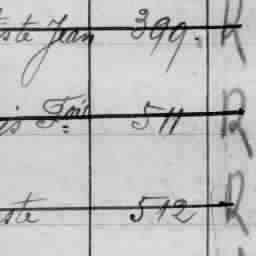 ste Jean 399. R
is Fois 511 R
ste 512 R